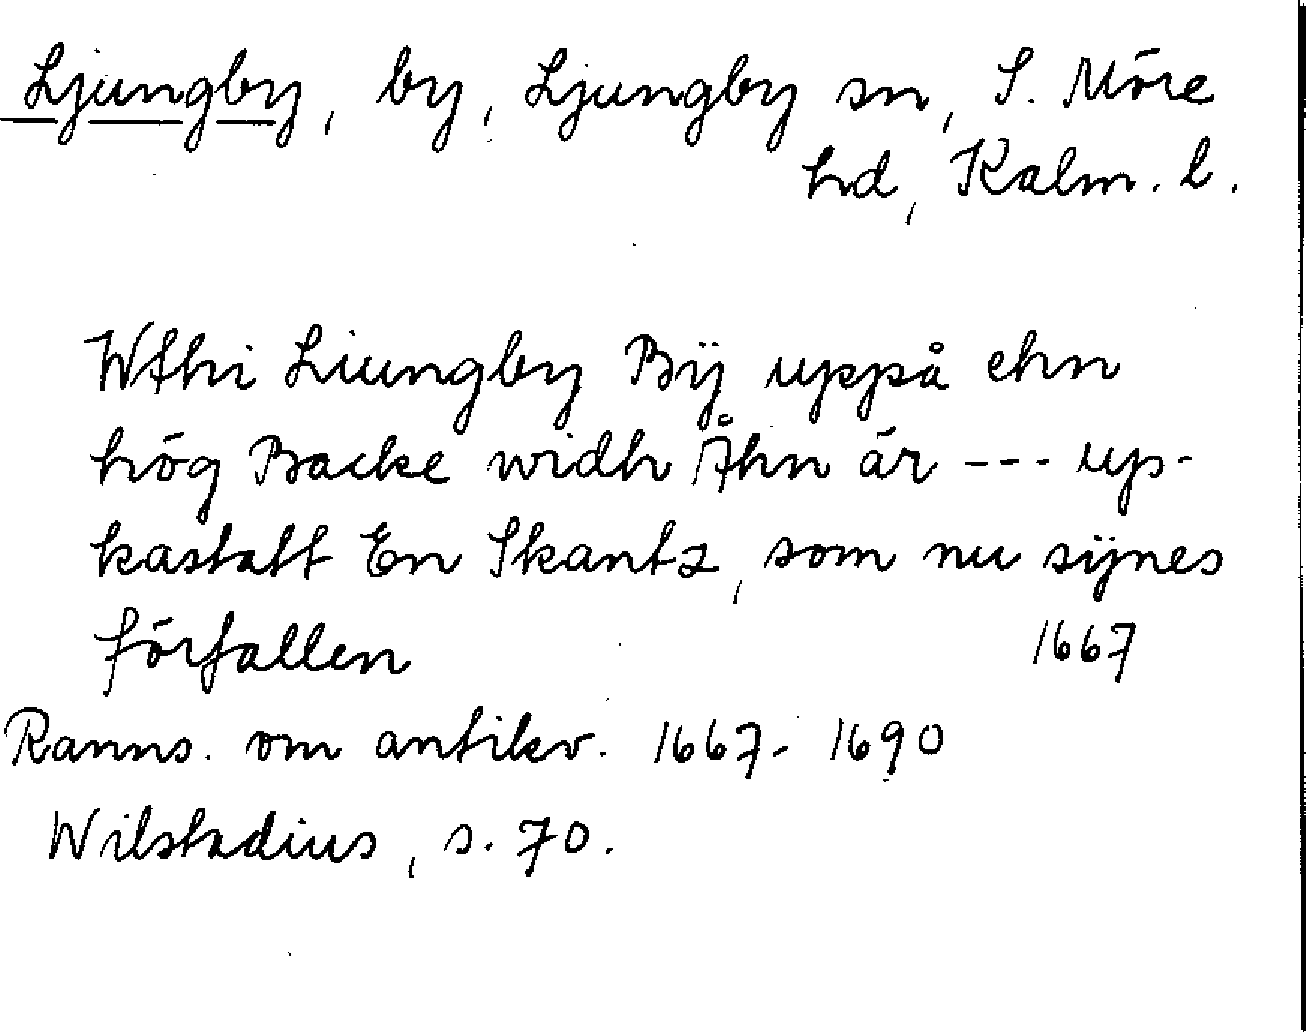 Ljungby, by, Ljungby sn, S. Möre
hd, Kalm. l.
Wthi Liungby Bÿ uppå ehn
hög Backe widh Åhn är --- up-
kastatt En Skantz, som nu sÿnes
förfallen 1667
Ranns. om antikv. 1667-1690
Wilstadius, s. 70.